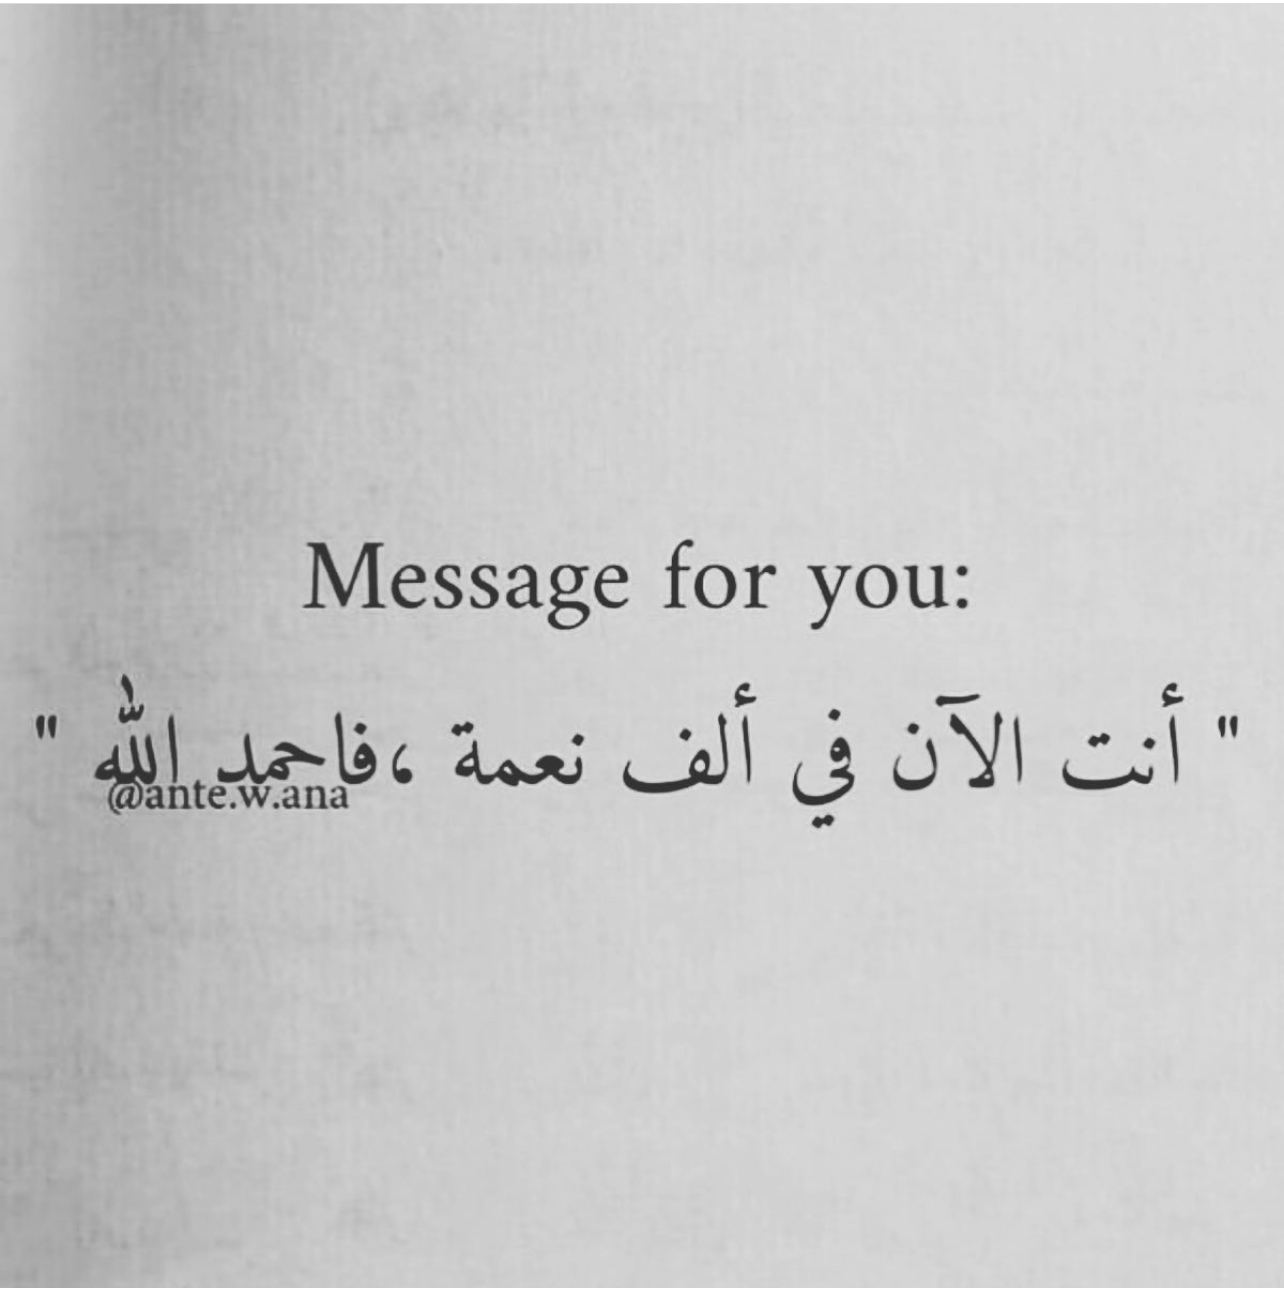 Message for you:
" أنت الآن في ألف نعمة ،فاحمد الله "
@ante.w.ana